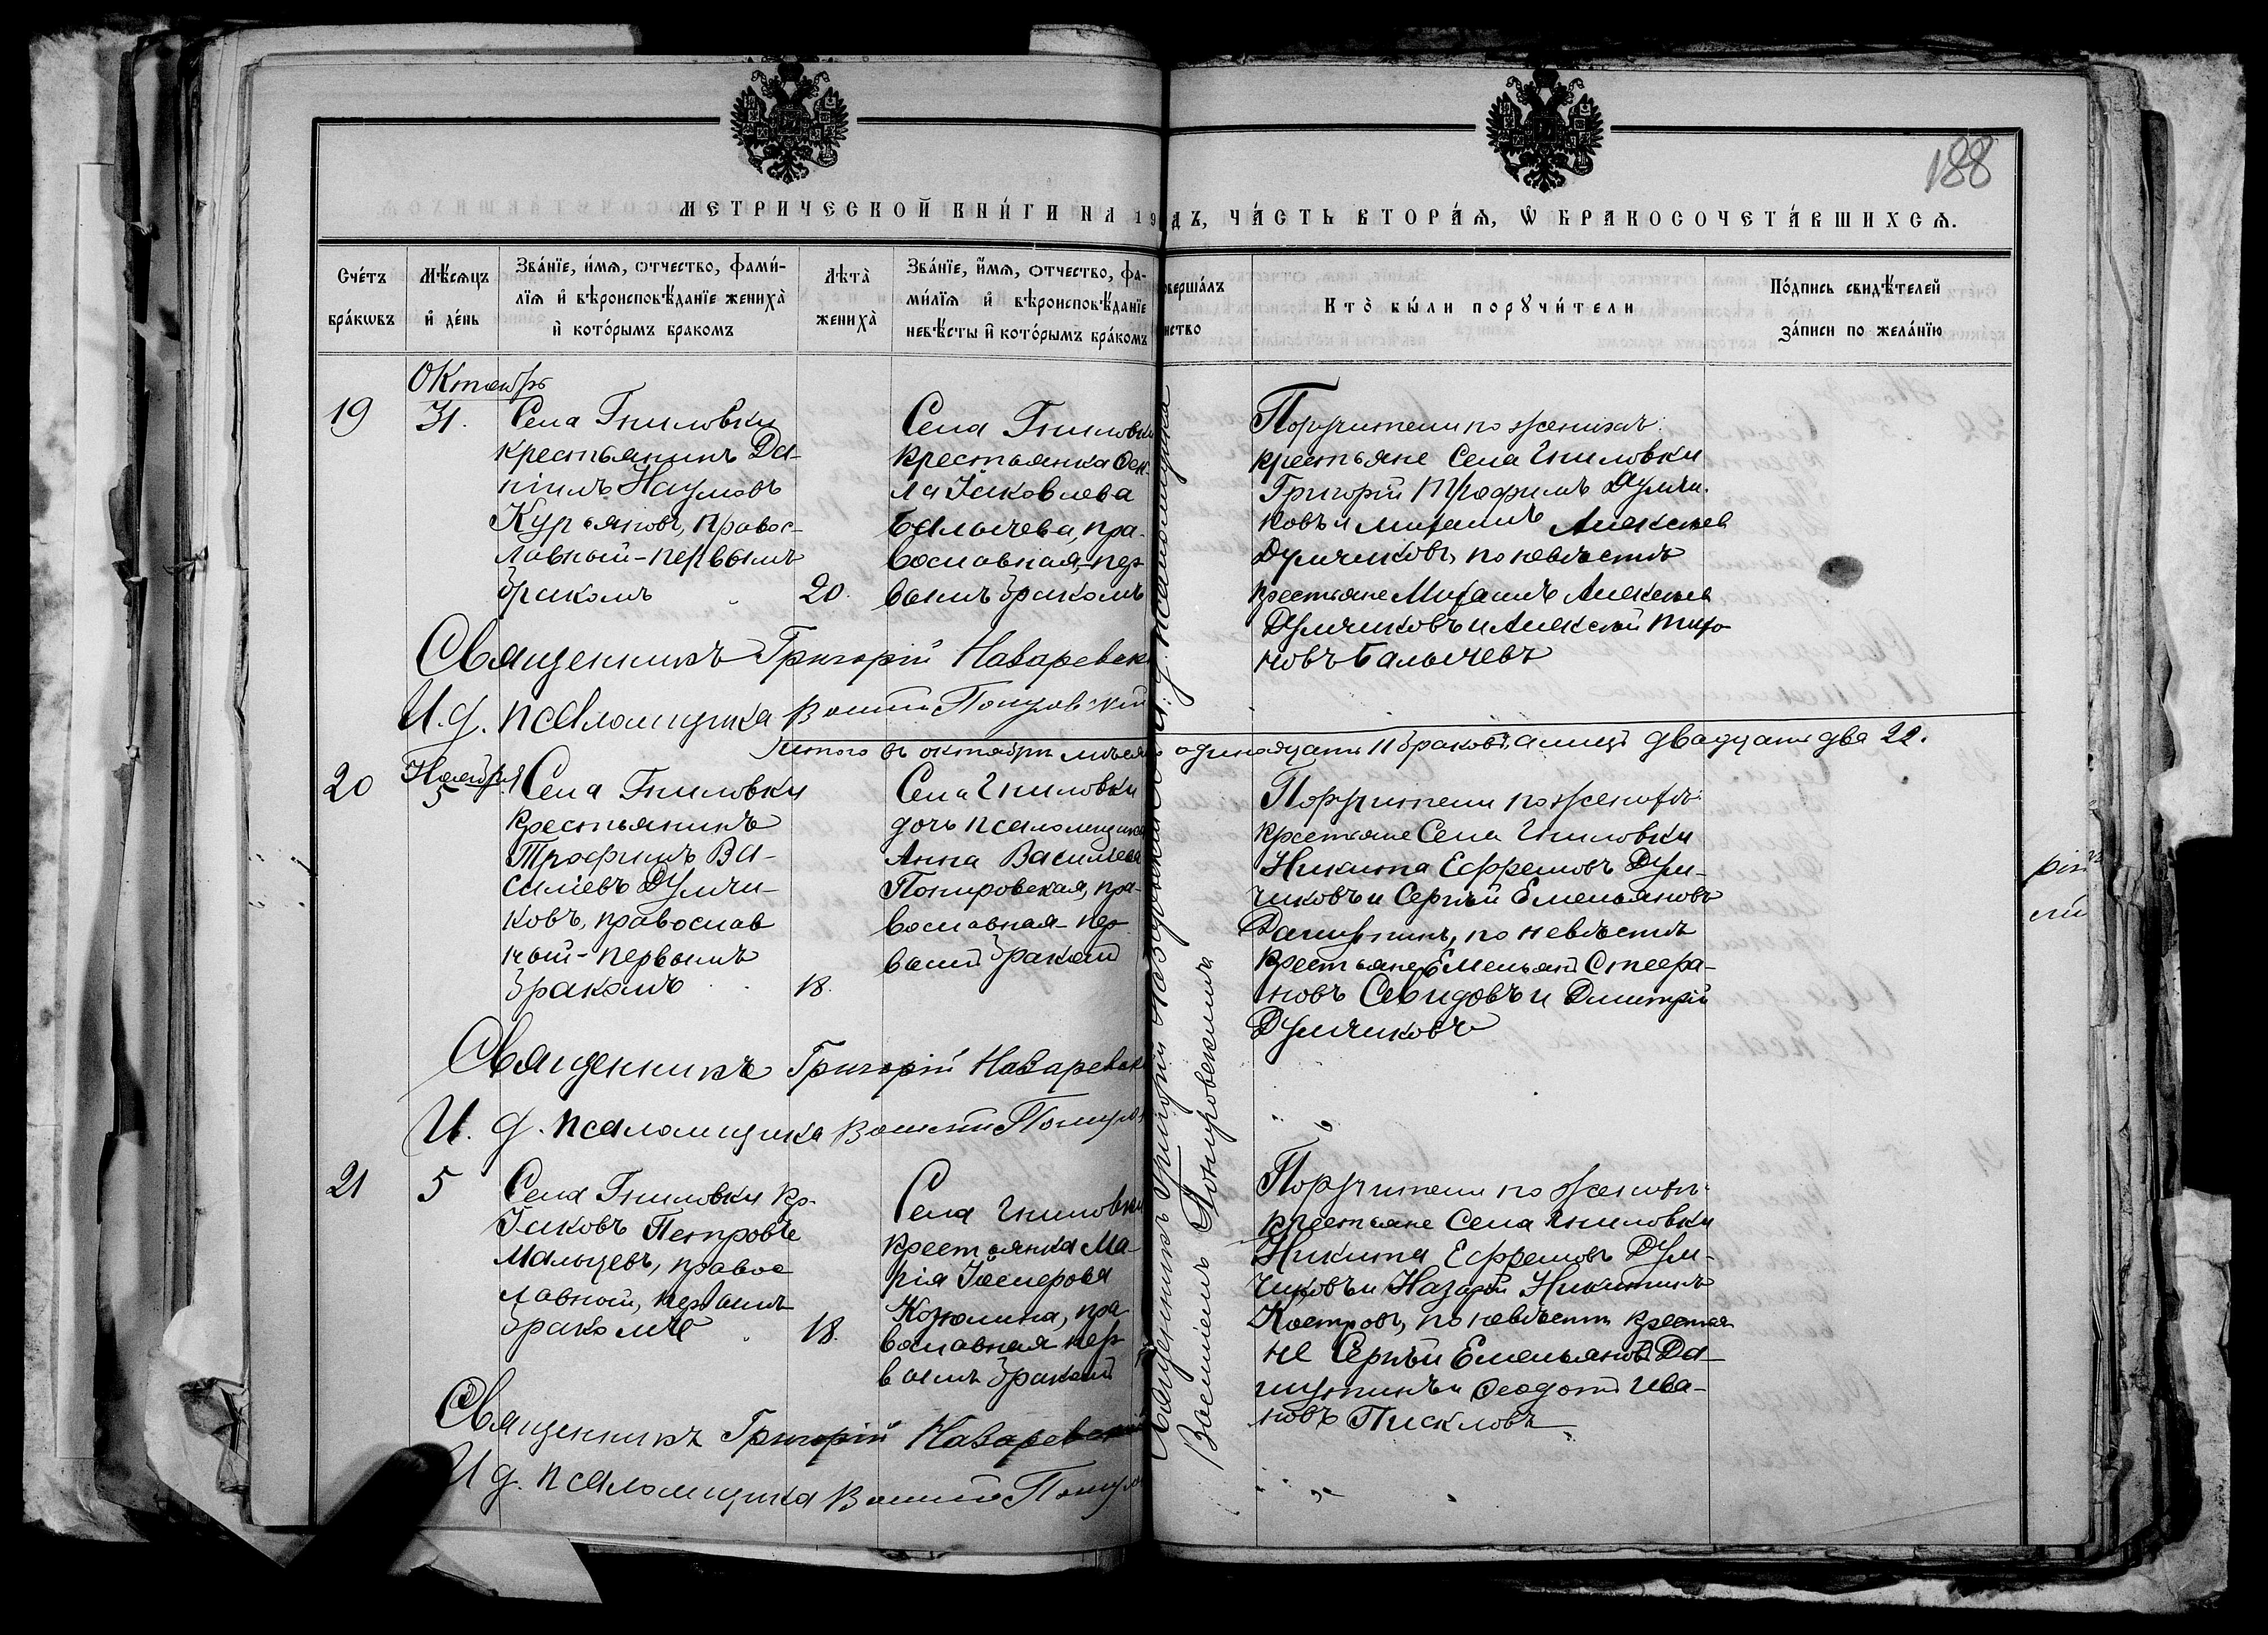 188
МЕТРИЧЕСКОЙ КНИ́ГИ НА 19
ДЪ, ЧА́СТЬ ВТОРА́Ѧ, Ѡ БРАКОСОЧЕТА́ВШИХСѦ.
Сче́тъ
бра́кѡвъ
Мѣ́сѧцъ
и҆ де́нь
Зва́нїе, и҆́мѧ, ѻтчество, фами́-
лїѧ и҆ вѣроисповѣ́данїе жениха̀
и҆ кото́рымъ бракомъ
Лѣта̀
жениха̀
Зва́нїе, и҆́мѧ, ѻтчество, фа-
ми́лїѧ и҆ вѣроисповѣ́данїе
невѣ́сты и҆ кото́рымъ бра́комъ
оверша́лъ
нство
Кто̀ бы́ли порꙋчи́тели
По́дпись свидѣ́телей
за́писи по жела́нїю
Октябрь
19
31.
Села Гниловки
крестьянинъ Да-
ніилъ Наумовъ
Курьяновъ, правос-
лавный-первымъ
бракомъ
20.
Села Гниловки
крестьянка Фек-
ла Іаковлева
Балычева, пра-
вославная,-пер
вымъ бракомъ
Поручители по женихѣ:
крестьяне Села Гниловки
Григорій Трофимъ Думчи-
ковъ и Михаилъ Алексѣев
Думчиковъ, по невѣстѣ
крестьяне Михаилъ Алексѣев
Думчиковъ и Алексѣй Тихо
новъ Балычевъ
Священникъ Григорій Назаревск
И. д. псаломщика Василій Понировскій
Итого въ октябрѣ мѣсяцѣ одинадцать 11 браковъ, а лицъ двадцать два 22.
20
Ноября
5
Села Гниловки
крестьянинъ
Трофимъ Ва-
силіевъ Думчи-
ковъ, православ
ный-первымъ
бракомъ
18.
Села Гниловки
дочь псаломщика
Анна Василіева
Понировская, пра-
вославная-пер
вымъ бракомъ
Поручители по женихѣ:
крестьяне Села Гниловки
Никита Ефремовъ Дум-
чиковъ и Сергѣй Емельяновъ
Дашутинъ, по невѣстѣ
крестьяне Емельянъ Стефа-
новъ Севидовъ и Димитрій
Думчиковъ
Священникъ Григорій Назаревск
И. д. псаломщика Василій Пониров
21
5
Села Гниловки кр.
Іаковъ Петровъ
Мальцевъ, правос
лавный, первымъ
бракомъ
18.
Села Гниловки
крестьянка Ма-
рія
пра
вославная пер
вымъ бракомъ
Поручители по женихѣ:
крестьяне Села Гниловки
Никита Ефремовъ Дум-
чиковъ и Назарій Никитинъ
Костровъ, по невѣстѣ крестья
не Сергѣй Емельяновъ Да-
шутинъ и Феодотъ Ива-
новъ Пискловъ
Священникъ Григорій Назаревскій
И д. псаломщика Василій Пониров
Священникъ Григорій Назаревскій съ и. д. псаломщика
Василіемъ Понировскимъ